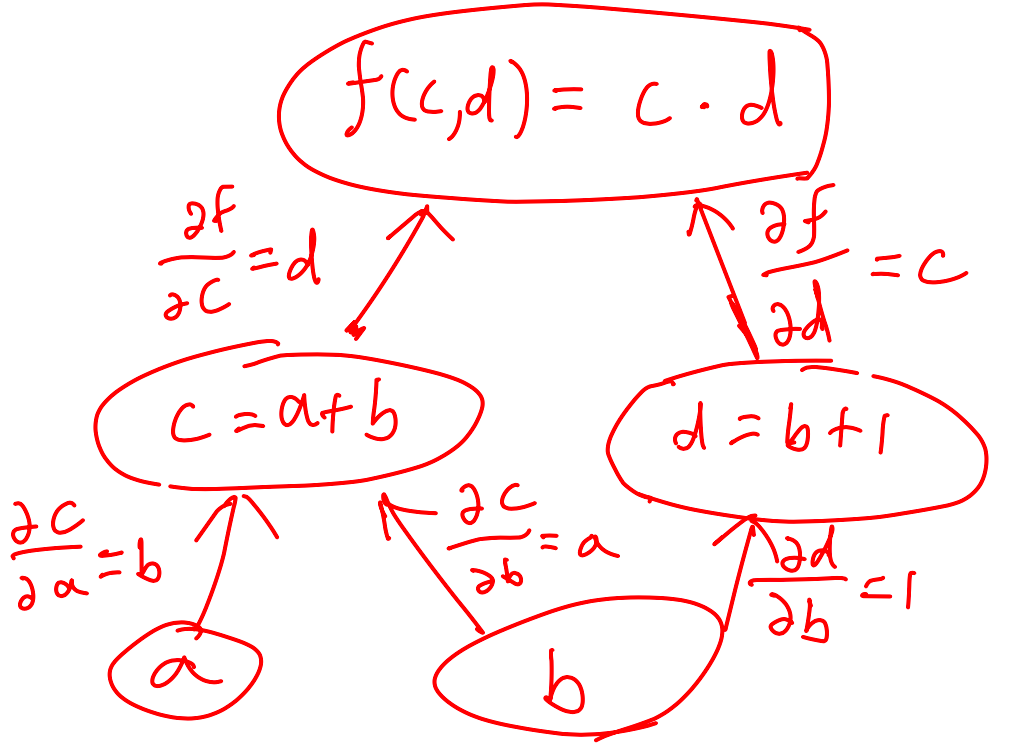 f(c,d) = c · d
∂f/∂c = d
∂f/∂d = c
c = a + b
d = b + 1
∂c/∂a = b
∂c/∂b = a
∂d/∂b = 1
a
b